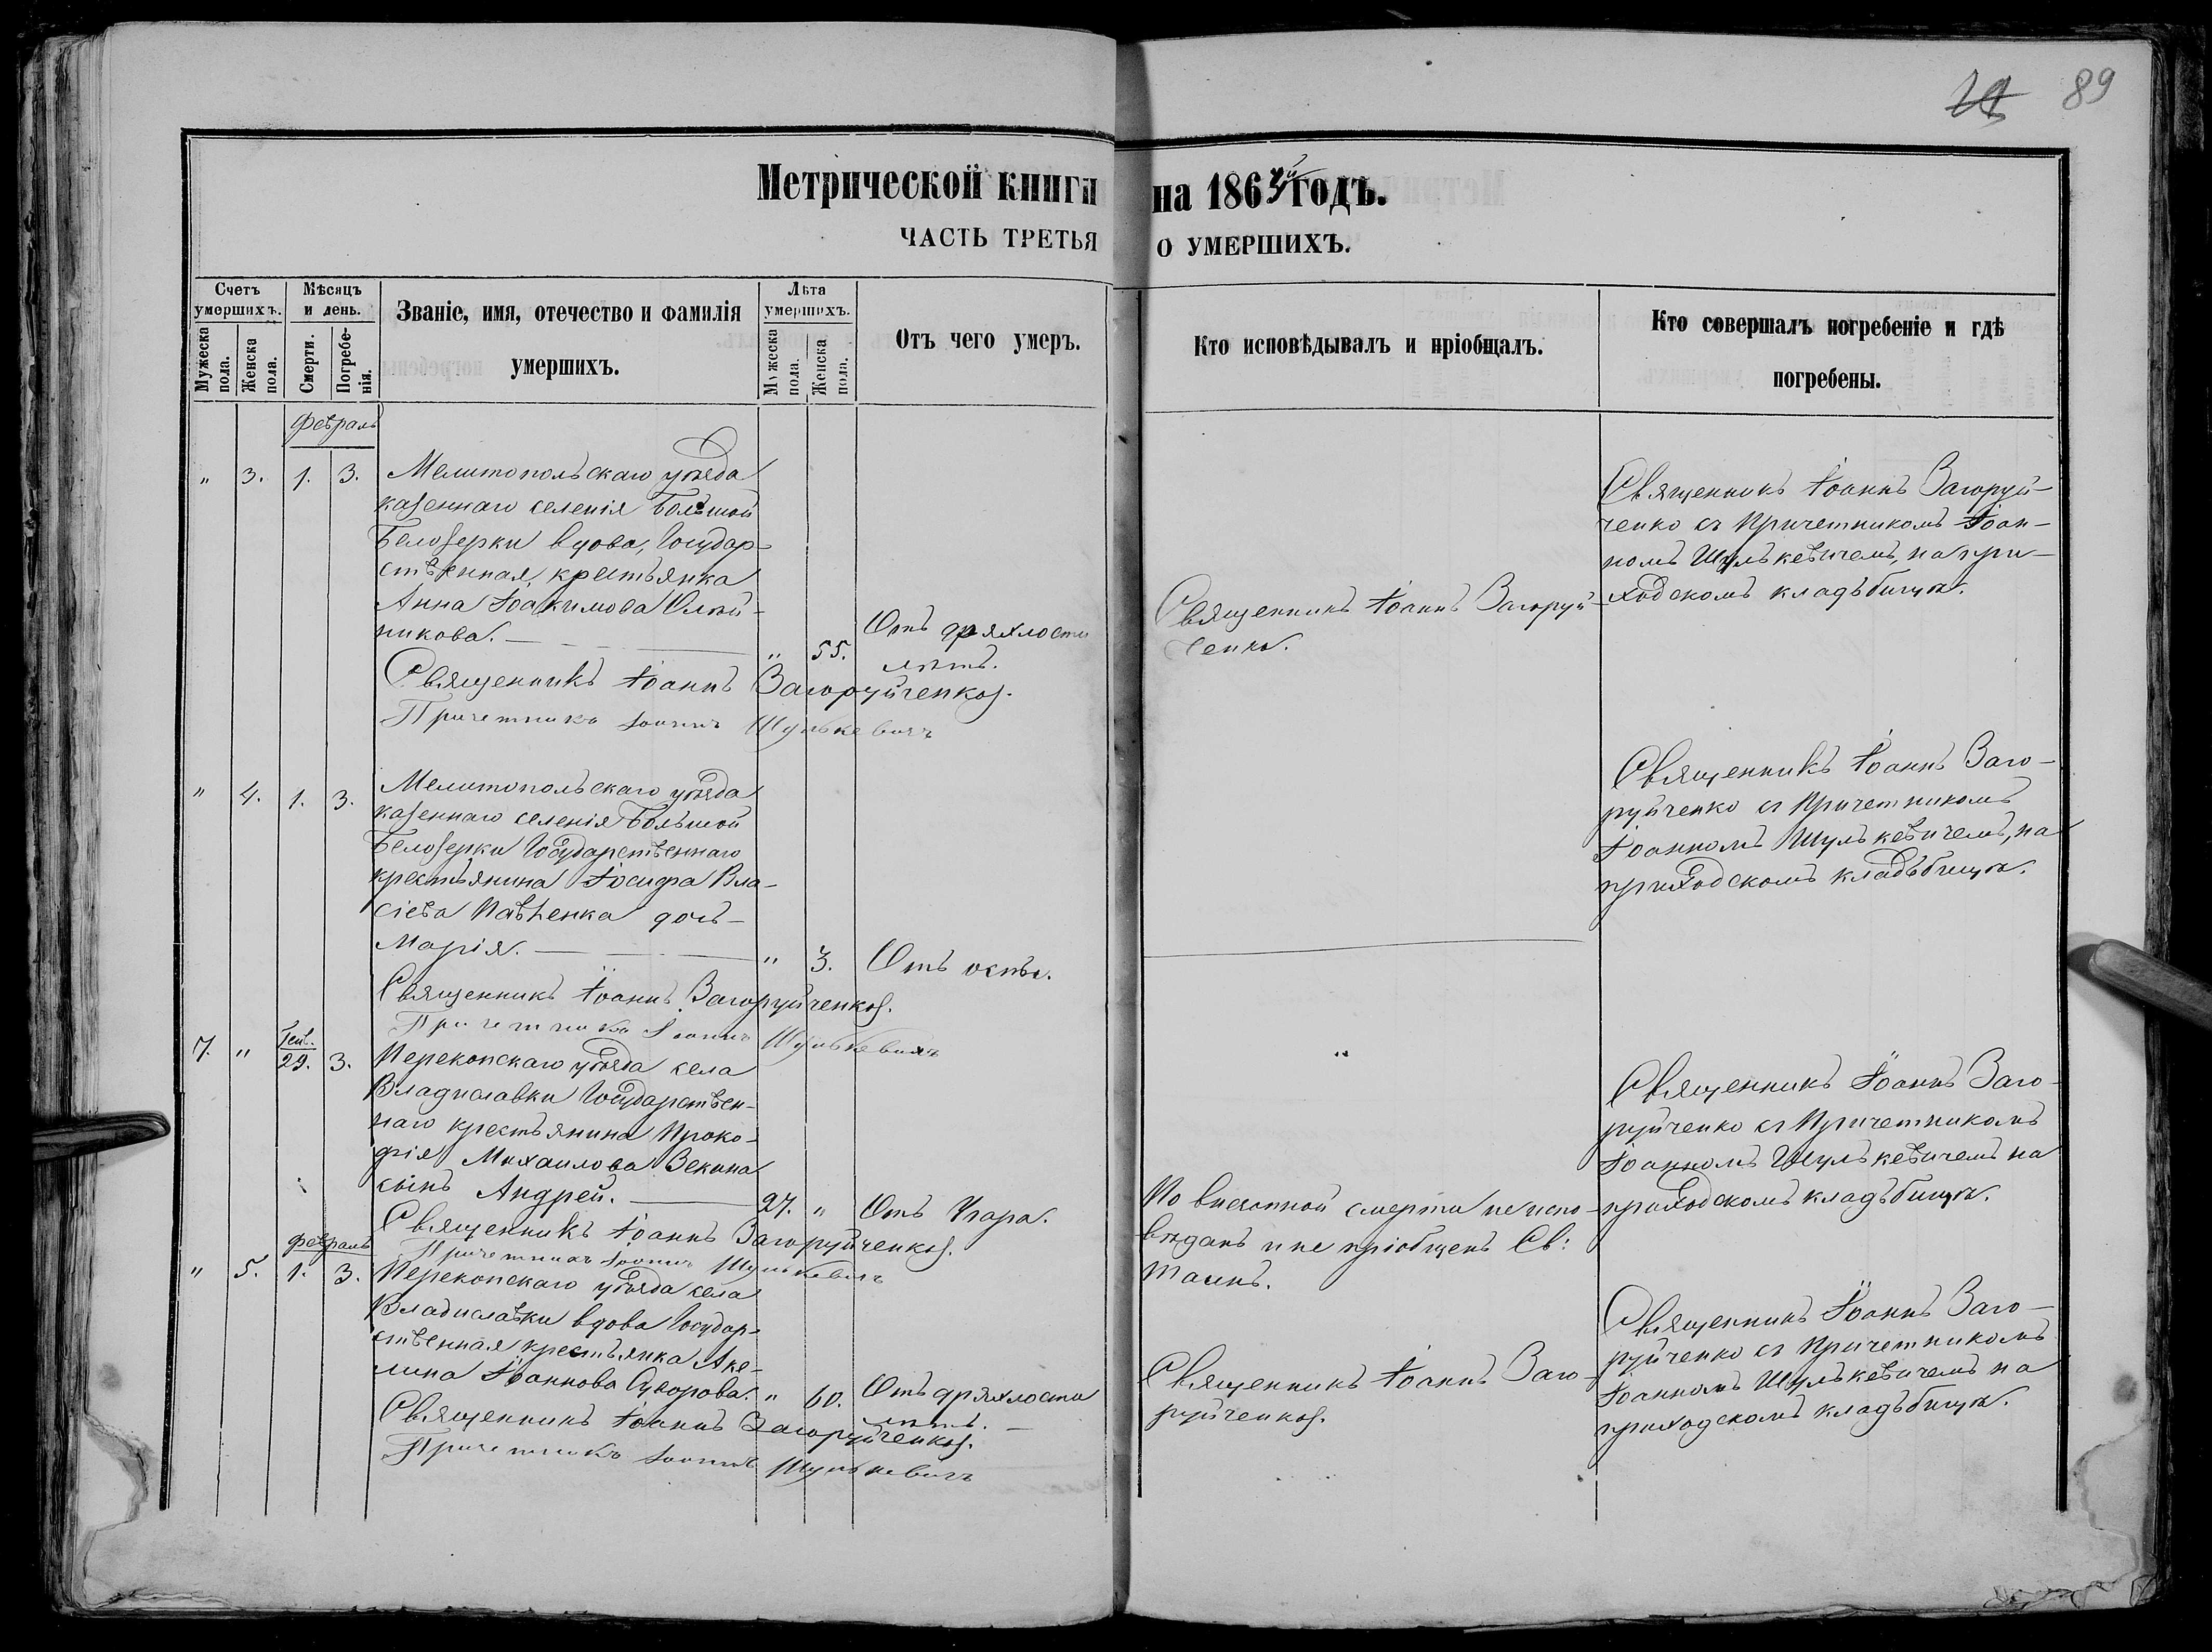 89
Метрической книги на 1864й годъ.
ЧАСТЬ ТРЕТЬЯ О УМЕРШИХЪ.
Счетъ умершихъ.
Мужеска пола.
Женска пола.
Мѣсяцъ и день.
Смерти.
Погребенія.
Званіе, имя, отечество и фамилія
умершихъ.
Лѣта умершихъ.
Мужеска пола.
Женска пола.
Отъ чего умеръ.
Кто исповѣдывалъ и пріобщалъ.
Кто совершалъ погребеніе и гдѣ
погребены.
Февраль
" 3. 1. 3.
Мелитопольскаго уѣзда
казеннаго селенія Большой
Белозерки вдова, Государ-
ственная крестьянка
Анна Іоакимова Олѣй-
никова. " 55.
Отъ дряхлости
лѣтъ.
Священникъ Іоаннъ Загоруй-
ченко.
Священникъ Іоаннъ Загоруй-
ченко съ Причетникомъ Іоан-
номъ Шулькевичемъ, на при-
ходскомъ кладъбищѣ.
Священникъ Іоаннъ Загоруйченко.
Причетникъ Іоаннъ Шулькевичъ
" 4. 1. 3.
Мелитопольскаго уѣзда
казеннаго селенія Большой
Белозерки Государственнаго
крестьянина Іосифа Вла-
сіева Павленка дочь
Марія. " 3. Отъ оспы.
Священникъ Іоаннъ Заго-
руйченко съ Причетникомъ
Іоанномъ Шулькевичемъ, на
приходскомъ кладъбищѣ.
Священникъ Іоаннъ Загоруйченко.
Причетникъ Іоаннъ Шулькевичъ
7. " Генв. 29. 3.
Перекопскаго уѣзда села
Владиславки Государствен-
наго крестьянина Проко-
фія Михаилова Зекина
сынъ Андрей. 27. " Отъ Угара.
По внезапной смерти не испо-
вѣданъ и не пріобщенъ Св:
Таинъ.
Священникъ Іоаннъ Заго-
руйченко съ Причетникомъ
Іоанномъ Шулькевичемъ на
приходскомъ кладъбищѣ.
Священникъ Іоаннъ Загоруйченко.
Причетникъ Іоаннъ Шулькевичъ
Февраль
" 5. 1. 3.
Перекопскаго уѣзда села
Владиславки вдова Государ-
ственная крестьянка Аке-
лина Іоаннова Суворова. " 60.
Отъ дряхлости
лѣтъ.
Священникъ Іоаннъ Заго-
руйченко.
Священникъ Іоаннъ Заго-
руйченко съ Причетникомъ
Іоанномъ Шулькевичемъ на
приходскомъ кладъбищѣ.
Священникъ Іоаннъ Загоруйченко.
Причетникъ Іоаннъ Шулькевичъ